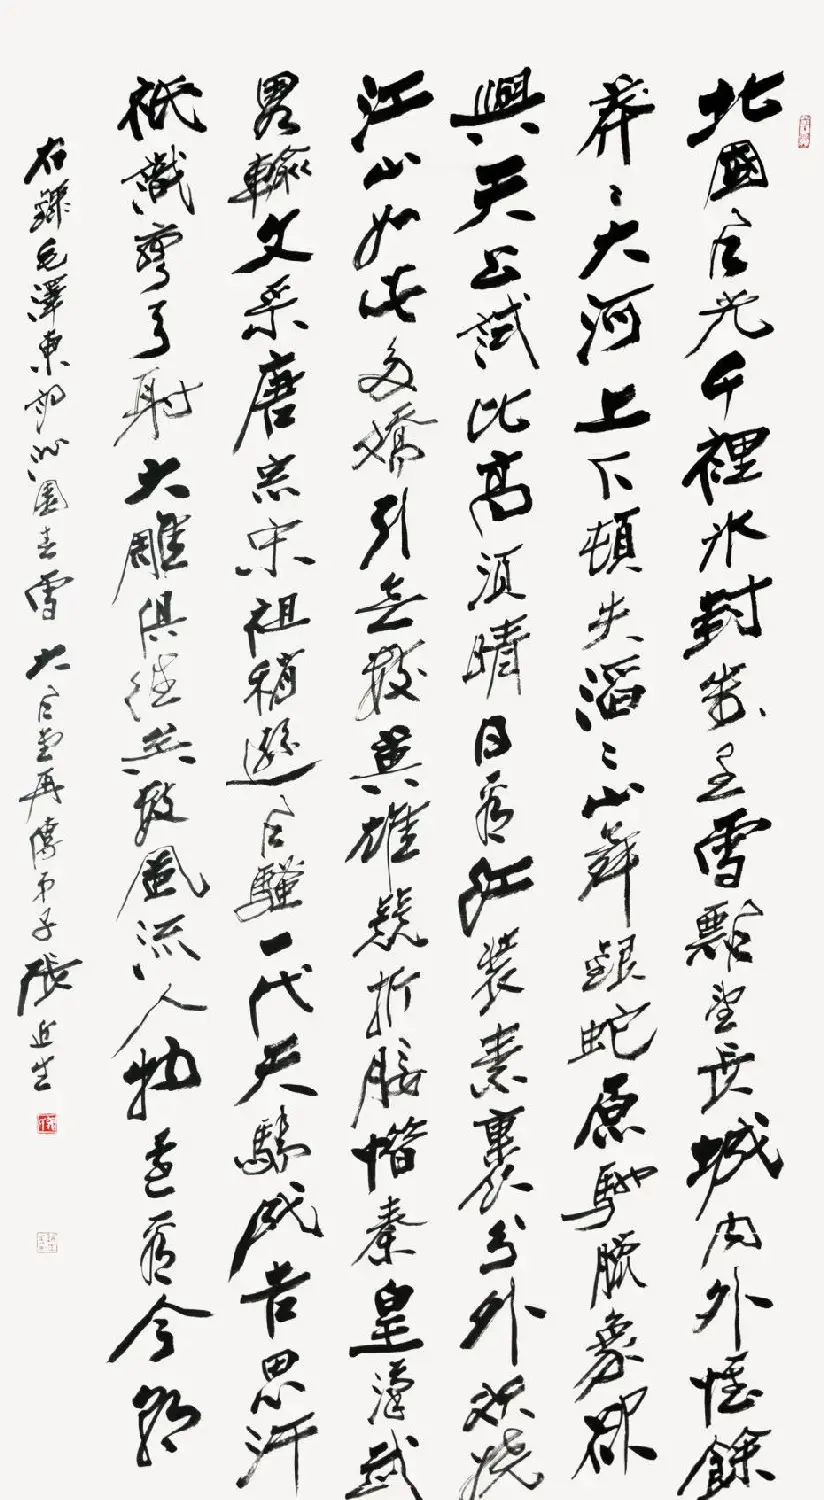 北國風光千裡冰封萬里雪飄望長城内外惟餘
莽〻大河上下頓失滔〻山舞銀蛇原馳臘象欲
與天公試比高須晴日看紅裝素裹分外妖嬈
江山如此多嬌引無數英雄競折腰惜秦皇漢武
畧輸文采唐宗宋祖稍遜風騷一代天驕成吉思汗
祇識彎弓射大雕俱往矣數風流人物還看今朝
右録毛澤東詞沁園春雪 大風堂再傳弟子張近生